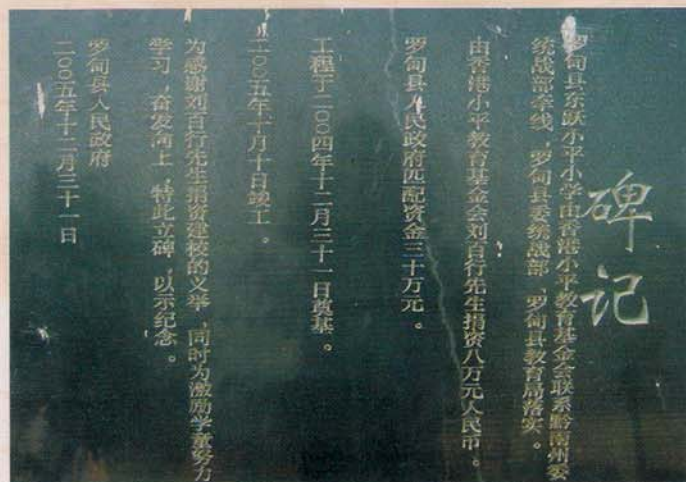 碑记
罗甸县东跃小平小学由香港小平教育基金会联系黔南州委
统战部牵线，罗甸县委统战部、罗甸县教育局落实。
由香港小平教育基金会刘百行先生捐资八万元人民币。
罗甸县人民政府匹配资金三十万元。
工程于二〇〇四年十二月三十一日奠基。
二〇〇五年十月十日竣工。
为感谢刘百行先生捐资建校的义举，同时为激励学童努力
学习，奋发向上，特此立碑，以示纪念。
罗甸县人民政府
二〇〇五年十二月三十一日